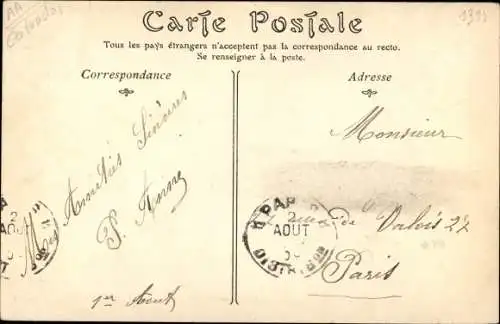 Carte Postale
Tous les pays étrangers n'acceptent pas la correspondance au recto.
Se renseigner à la poste.
Correspondance
Adresse
Amitiés Sincères
P. Anne
1er Aout
Monsieur
de Valois 27
Paris
PAR
2
AOUT
DISTRIBUTION
2
AOUT
Calvados